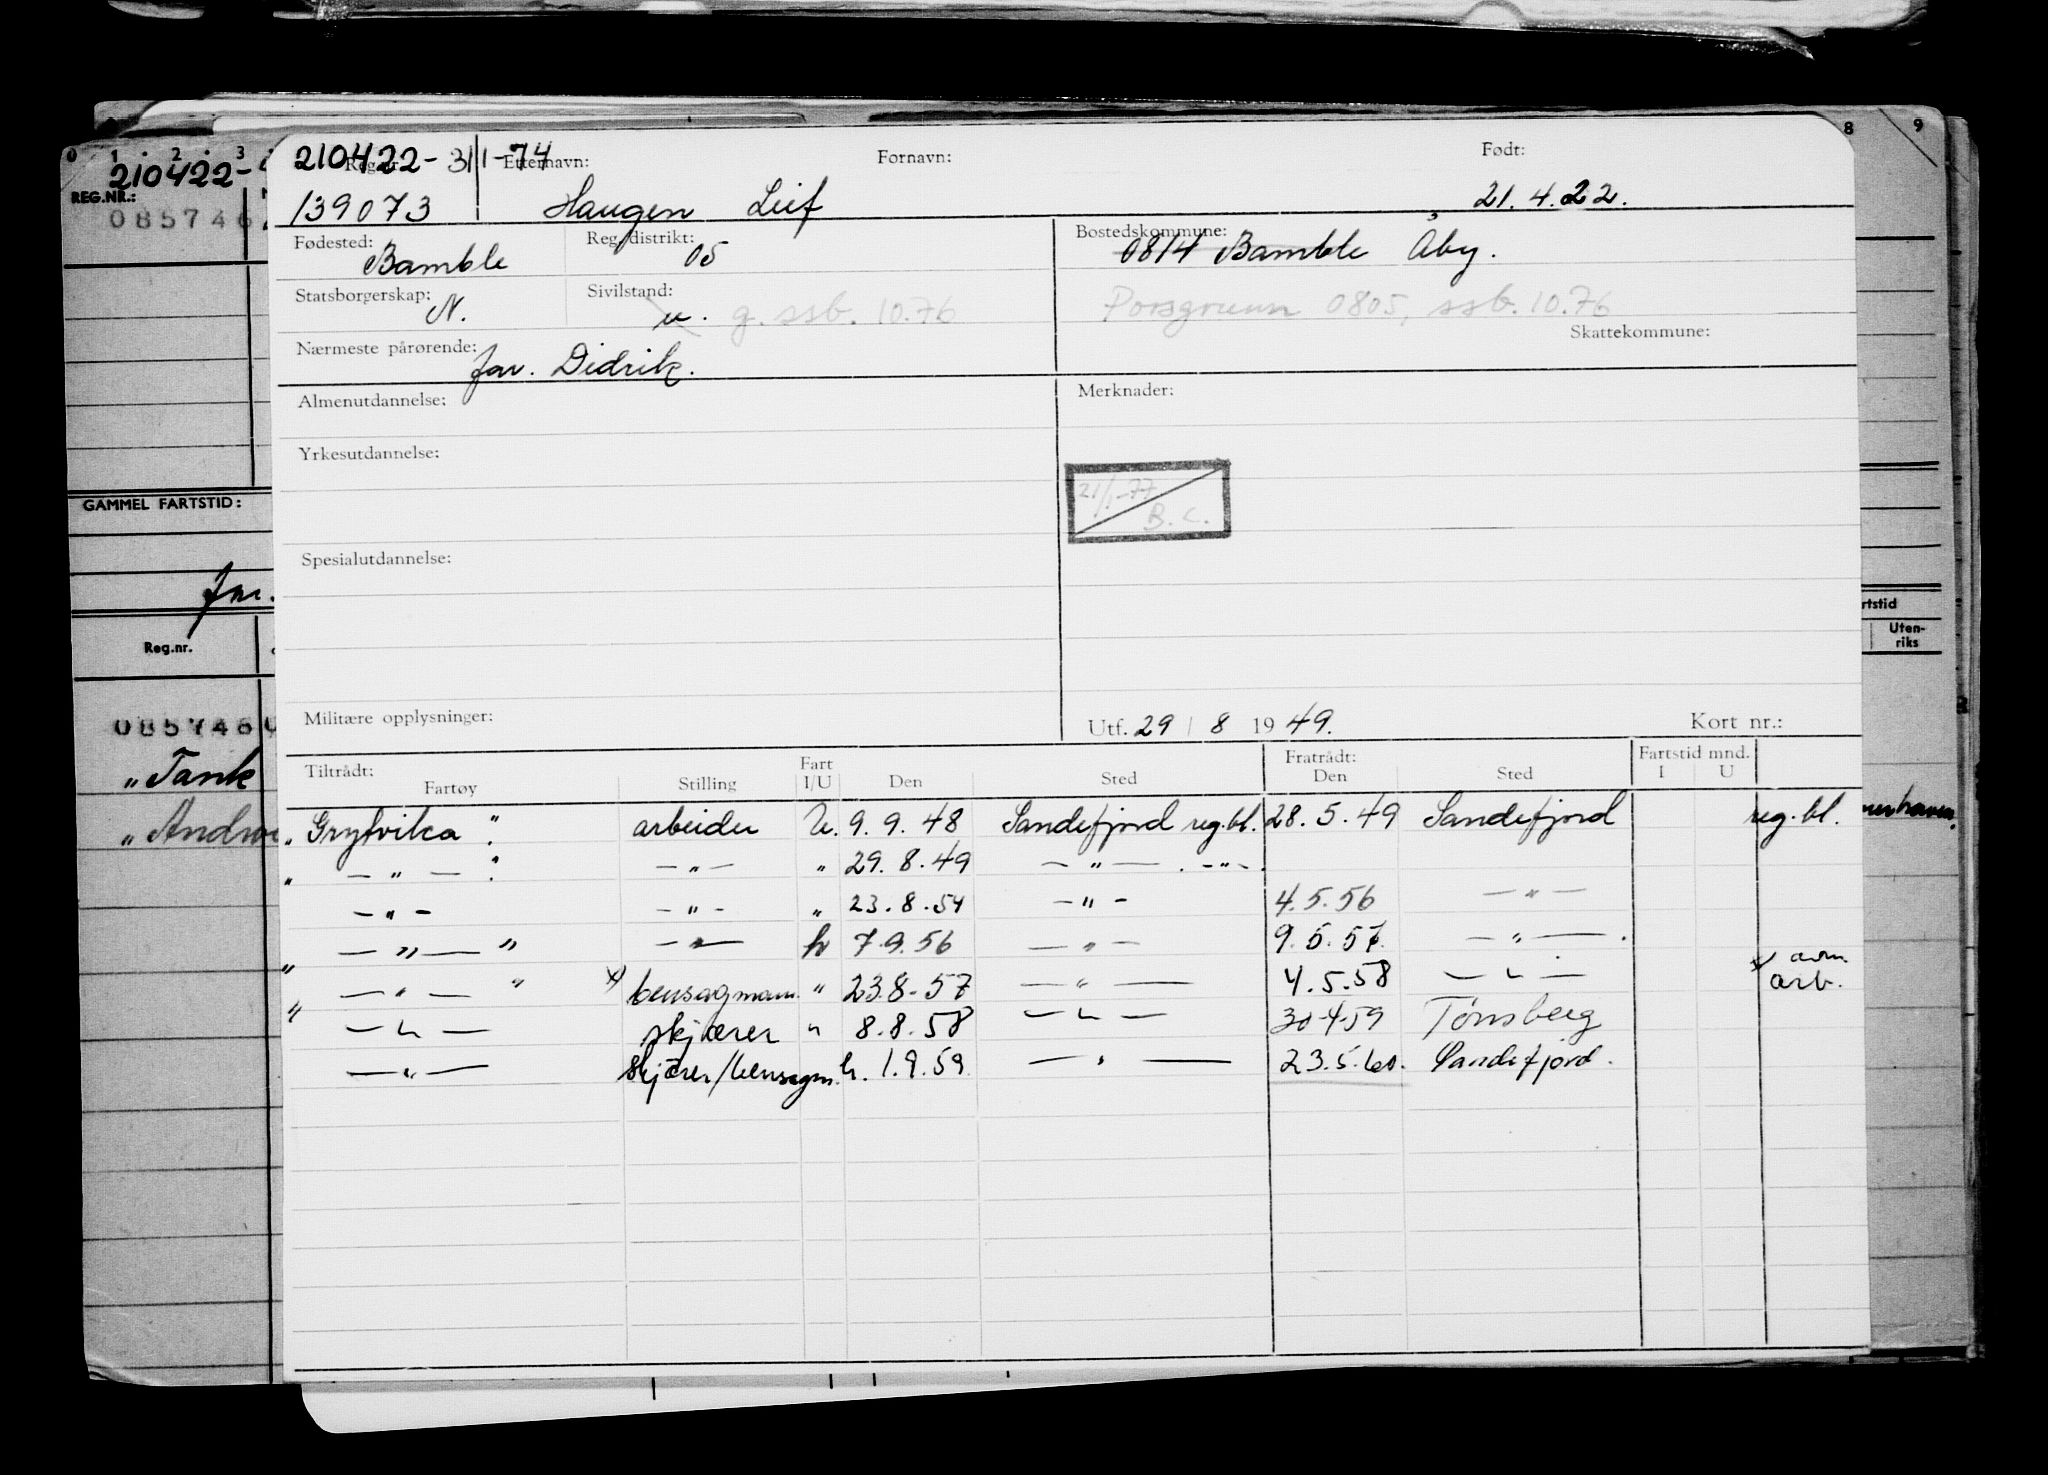 0 1 2 3 8 9
210422-
REG.NR.:
085746
GAMMEL FARTSTID:
Reg.nr.
085746
„ Tank
rtstid
Uten-
riks
210422-31/1-74
Reg.nr. Etternavn: Fornavn: Født:
139073 Haugen Leif 21.4.22.
Fødested: Bamble Reg. distrikt: 05 Bostedskommune: 0814 Bamble Åby.
Statsborgerskap: N. Sivilstand: u. g. ssb. 10.76 Porsgrunn 0805, ssb. 10.76
Skattekommune:
Nærmeste pårørende: far. Didrik.
Almenutdannelse: Merknader:
Yrkesutdannelse:
21/1-77
B.C.
Spesialutdannelse:
Militære opplysninger: Utf. 29 / 8 1949. Kort nr.:
Tiltrådt: Fart Fratrådt: Fartstid mnd.
Fartøy Stilling I/U Den Sted Den Sted I U
„ Grytvika " arbeider U. 9.9.48 Sandefjord reg.bl. 28.5.49 Sandefjord reg.bl.
„ — „ — " — „ — „ 29.8.49 — „ — . — „ — .
— „ — — „ — „ 23.8.54 — „ — 4.5.56 — „ —
„ — „ — " — „ — h 7.9.56 — „ — 9.5.57. — „ — .
„ — „ — " x) bensagmann „ 23.8-57 — „ — 4.5.58 — „ — x) arb.
— „ — skjærer „ 8.8.58 — „ — 30-4-59 Tønsberg
— „ — skjærer/bensagm. h. 1.9.59 — „ — 23.5.60. Sandefjord.